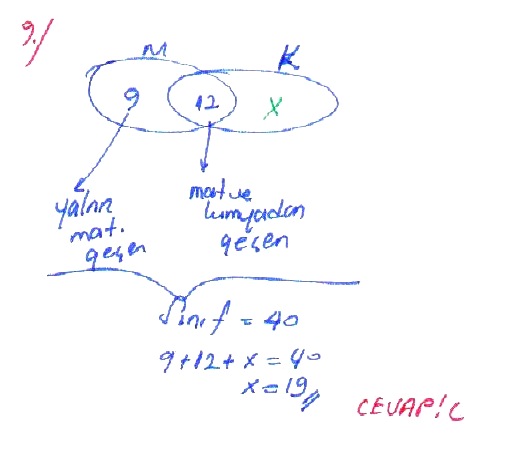 9./
M K
9 12 x
yalnız mat. geçen
mat ve kimyadan geçen
Sınıf = 40
9+12+x=40
x=19//
CEVAP: C